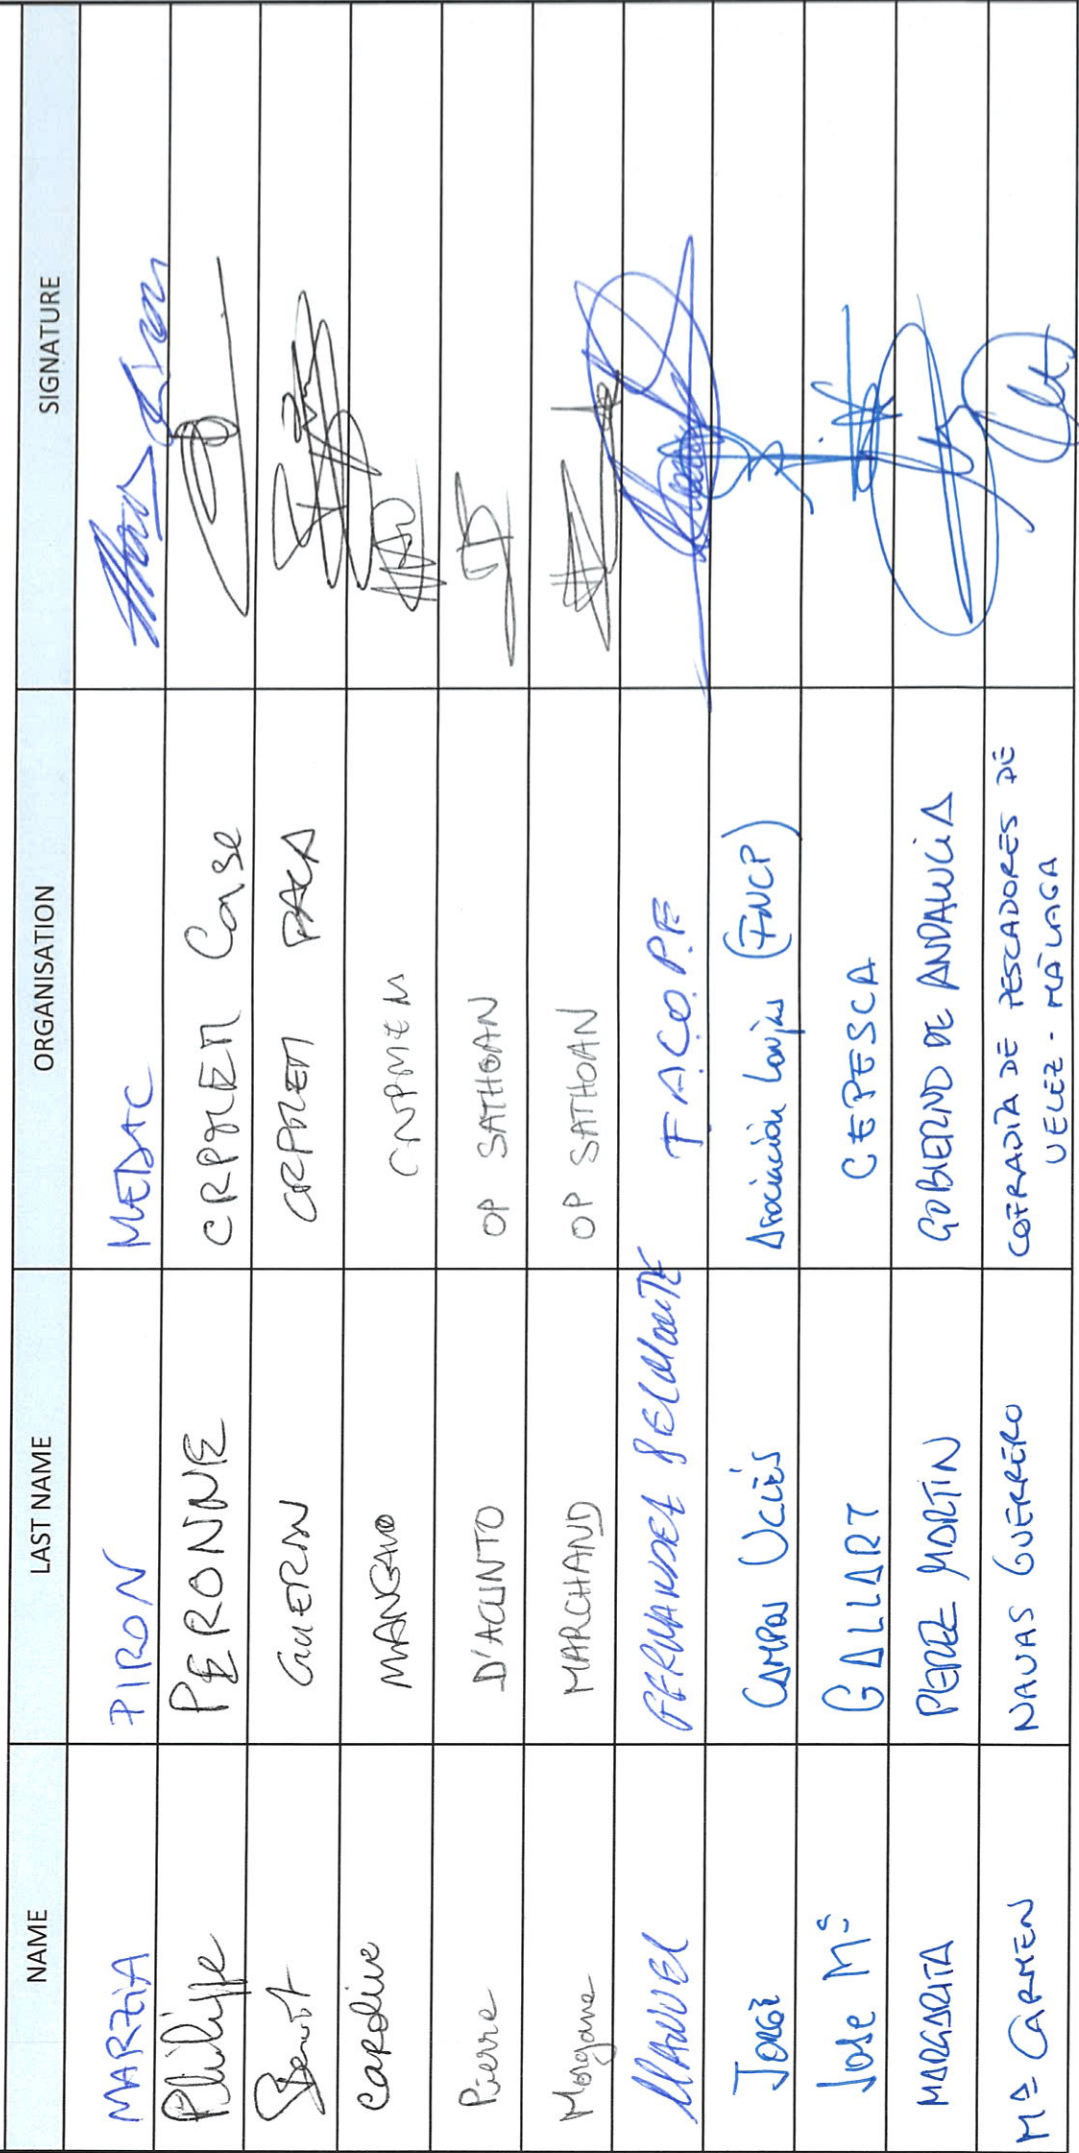 NAME LAST NAME ORGANISATION SIGNATURE
MARZIA PIRON MEDAC
Philippe PERONNE CRPMEM Corse
Benoit GUERIN CRPMEM PACA
Caroline MANGANO CNPMEM
Pierre D'ACUNTO OP SATHOAN
Morgane MARCHAND OP SATHOAN
MANUEL FERNANDEZ BELMONTE F.A.C.O.P.E
JORGE CAMPOS UCLÉS Asociación Lonjas (FNCP)
JOSE Mª GALLART CEPESCA
MARGARITA PEREZ MARTIN GOBIERNO DE ANDALUCIA
Mª CARMEN NAVAS GUERRERO COFRADÍA DE PESCADORES DE
VELEZ-MÁLAGA